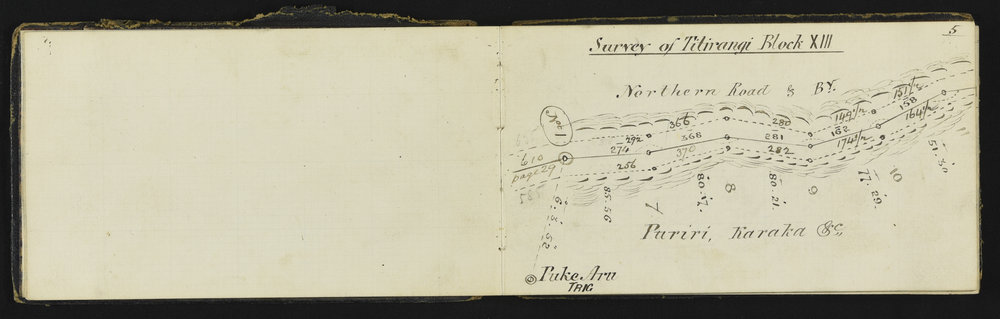 5
Survey of Titirangi Block XIII
Northern Road & By.
No 1
366 280 149½ 151½
292 368 281 162 158
274 370 282 174½ 164½
256
610
page 29
85.56 7 80.17. 8 80.21. 9 77.29. 10 51.30
6.2.52
Puriri, Karaka &c,
Puke Aru
TRIG